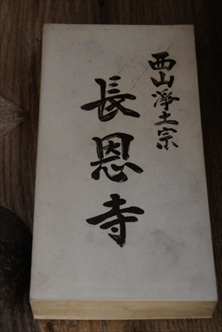 西山浄土宗
長恩寺